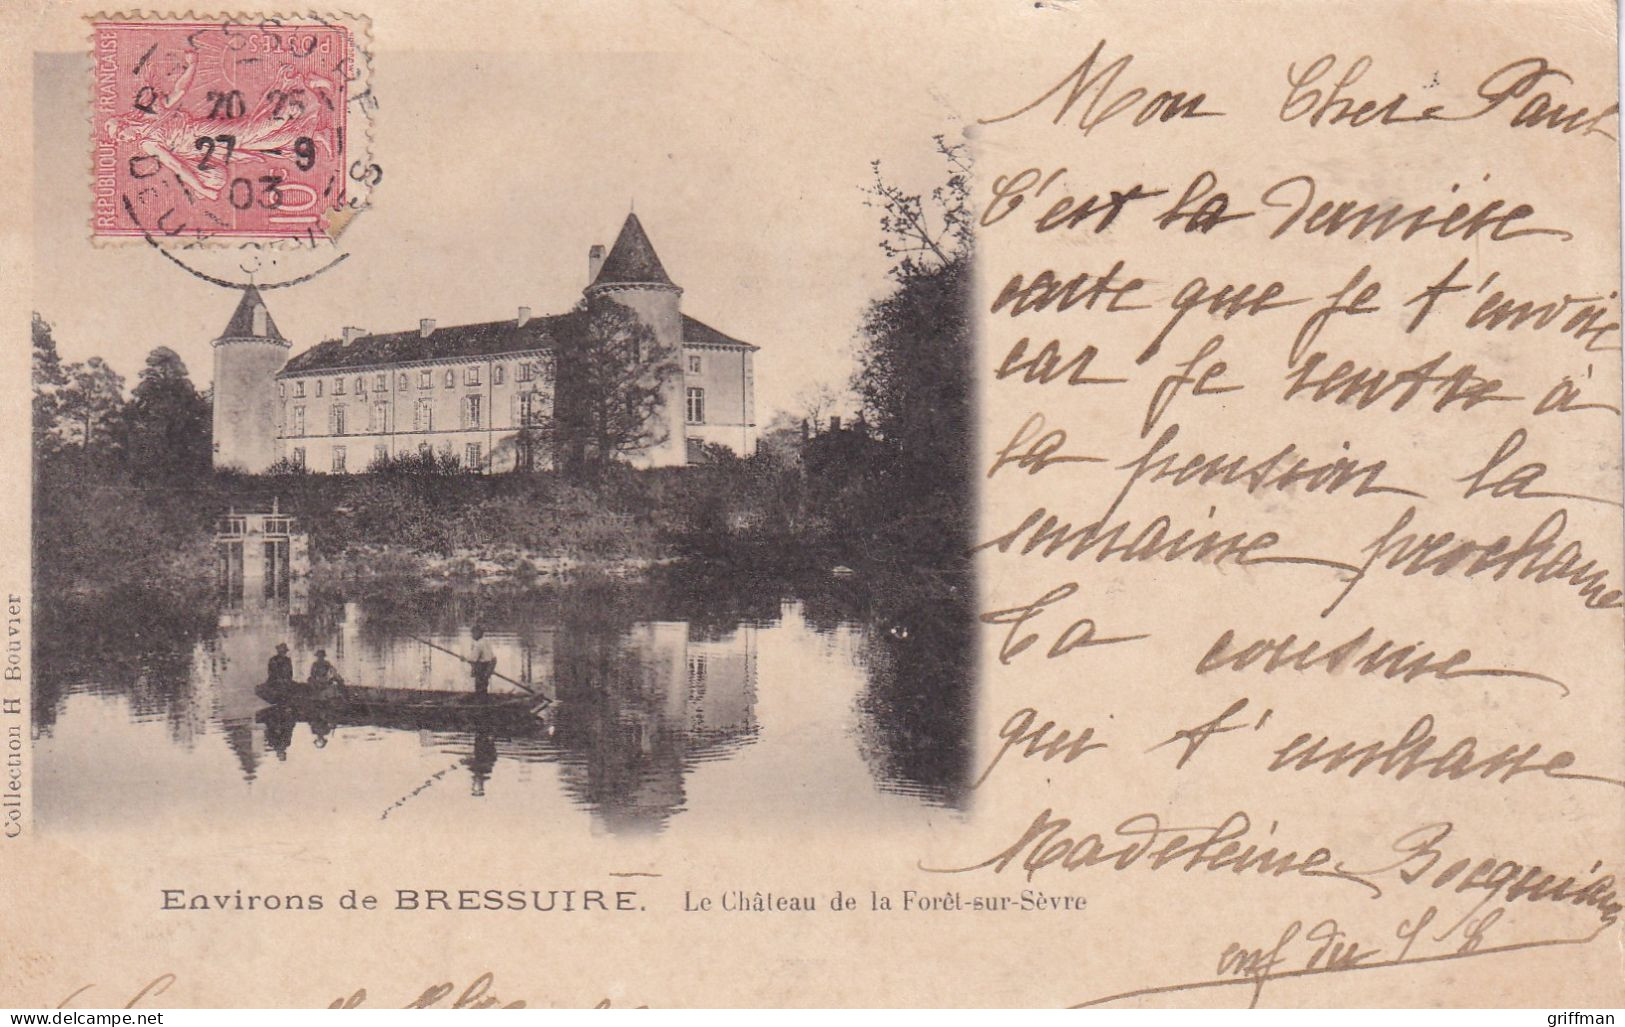 RÉPUBLIQUE FRANÇAISE
POSTES
10c
20 25
27 - 9
03
Mon Cher Paul
C'est la dernière
carte que je t'envoie
car je rentre à
la pension la
semaine prochaine
Ta cousine
qui t'embrasse
Madeleine
enf du
Collection H Bouvier
Environs de BRESSUIRE. Le Château de la Forêt-sur-Sèvre
delcampe.net
griffman